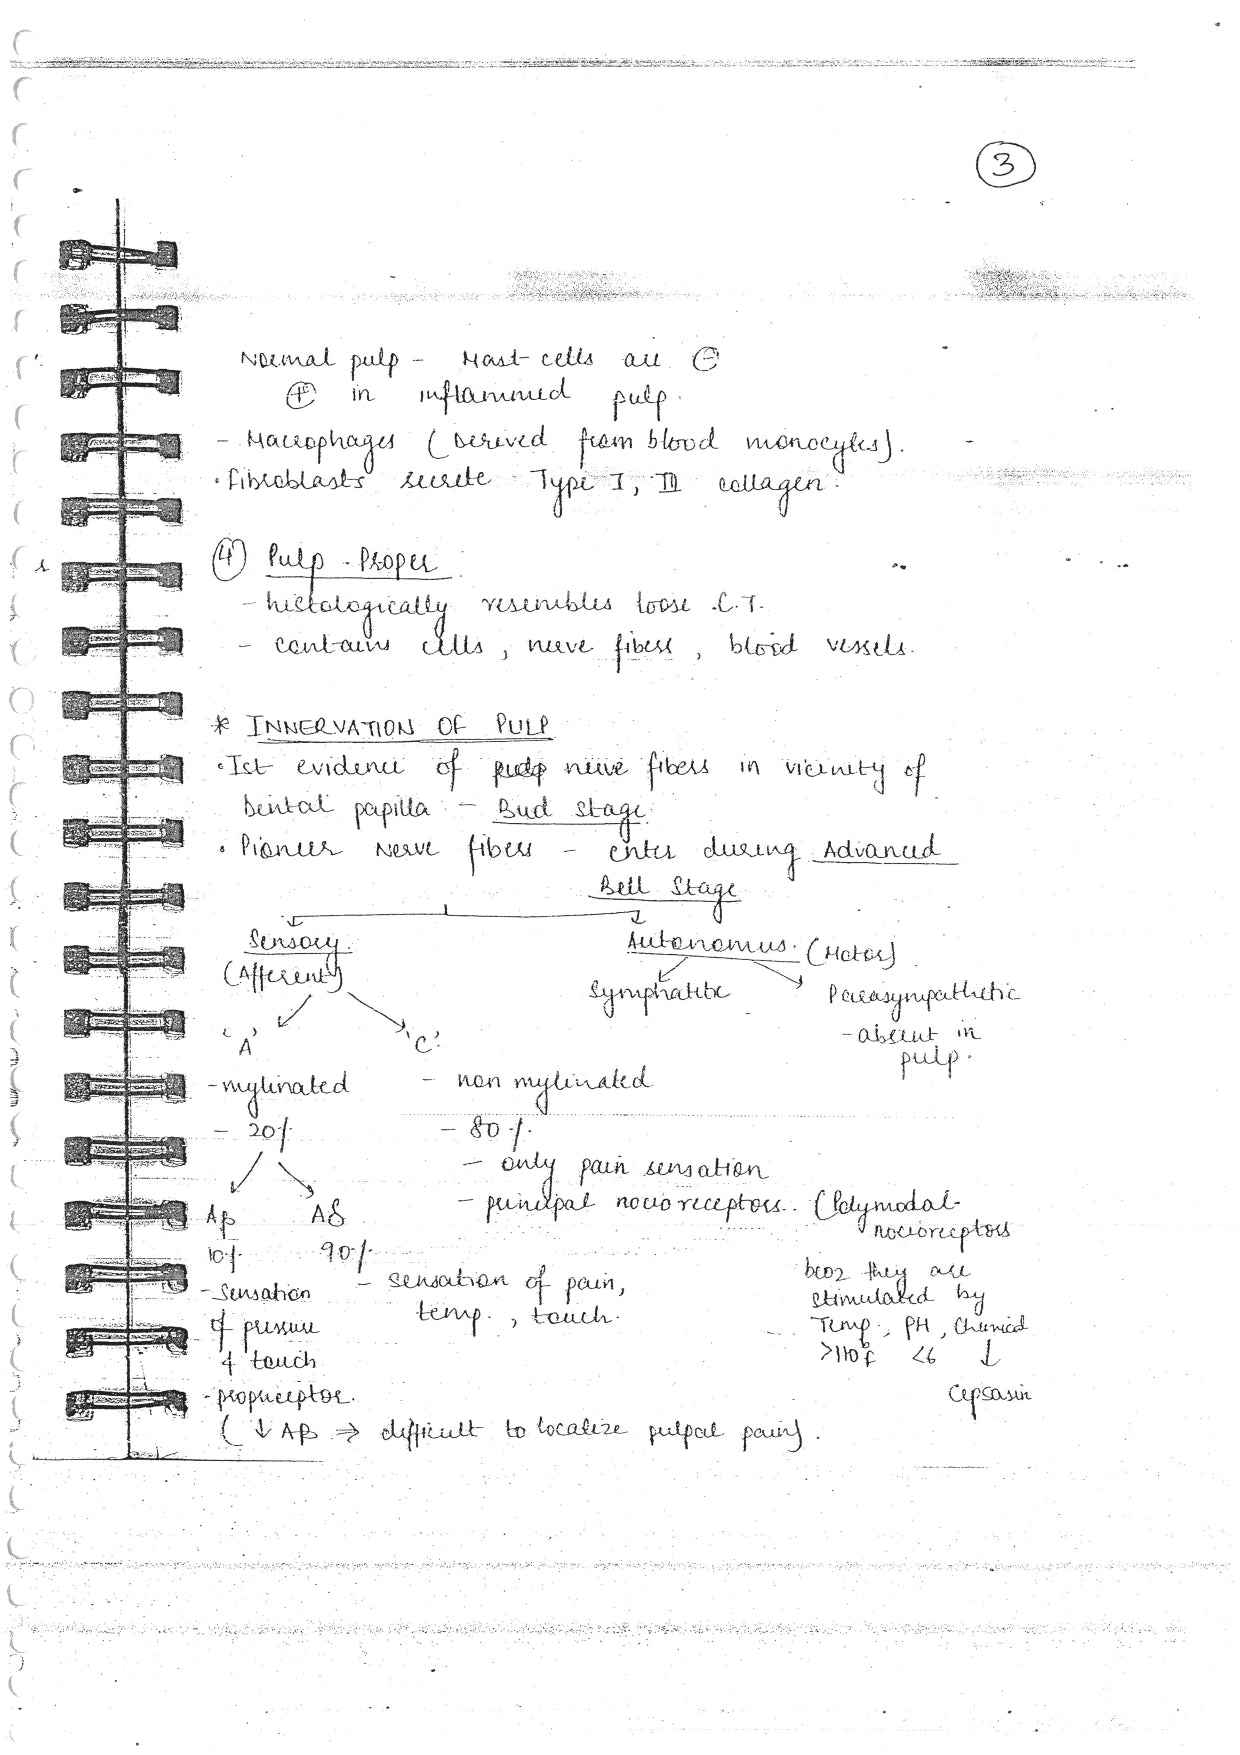 3
Normal pulp - Mast cells are ⊖
⊕ in inflammed pulp.
- Macrophages (Derived from blood monocytes).
• Fibroblasts secrete Type I, III collagen.
④ Pulp Proper
- histologically resembles loose C.T.
- contains cells, nerve fibers, blood vessels.
* INNERVATION OF PULP
• Ist evidence of nerve fibers in vicinity of
Dental papilla - Bud Stage.
• Pioneer Nerve fibers - enter during Advanced
Bell Stage
Sensory. Autonomus. (Motor)
(Afferent)
Symphatetic Parasympathetic
'A' 'C' - absent in
pulp.
- mylinated - non mylinated
- 20% - 80%.
- only pain sensation
- principal nocioreceptors. (Polymodal
Aβ Aδ nocioreceptors
10% 90%
- Sensation - sensation of pain, bcoz they are
temp., touch. stimulated by
of pressure Temp., PH, Chemical
& touch >110°f <6 ↓
- propriceptor. Cepsasin
(↓ Aβ ⇒ difficult to localize pulpal pain).